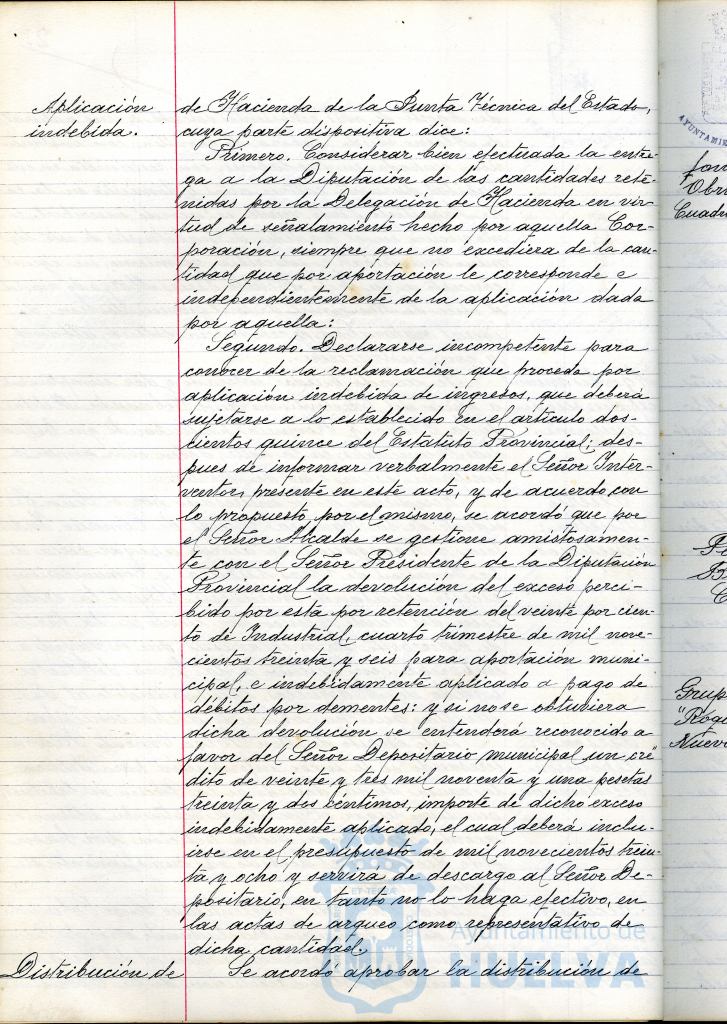 Aplicación
indebida.
de Hacienda de la Junta Técnica del Estado,
cuya parte dispositiva dice:
Primero. Considerar bien efectuada la entre-
ga a la Diputación de las cantidades rete-
nidas por la Delegación de Hacienda en vir-
tud de señalamiento hecho por aquella Cor-
poración, siempre que no excediera de la can-
tidad que por aportación le corresponde e
independientemente de la aplicación dada
por aquella:
Segundo. Declararse incompetente para
conocer de la reclamación que proceda por
aplicación indebida de ingresos, que deberá
sujetarse a lo establecido en el artículo dos-
cientos quince del Estatuto Provincial; des-
pues de informar verbalmente el Señor Inter-
ventor, presente en este acto, y de acuerdo con
lo propuesto por el mismo, se acordó que por
el Señor Alcalde se gestione amistosamen-
te con el Señor Presidente de la Diputación
Provincial la devolución del exceso perci-
bido por esta por retención del veinte por cien-
to de Industrial, cuarto trimestre de mil nove-
cientos treinta y seis para aportación muni-
cipal, e indebidamente aplicado a pago de
débitos por dementes: y si no se obtuviera
dicha devolución se entenderá reconocido a
favor del Señor Depositario municipal un cré-
dito de veinte y tres mil noventa y una pesetas
treinta y dos céntimos, importe de dicho exceso
indebidamente aplicado, el cual deberá inclu-
irse en el presupuesto de mil novecientos trein-
ta y ocho y servirá de descargo al Señor De-
positario, en tanto no lo haga efectivo, en
las actas de arqueo como representativo de
dicha cantidad.
Distribución de
Se acordó aprobar la distribución de
Ayuntamiento de
HUELVA
Obr
Cuadr
Grup
"Rog
Nuev